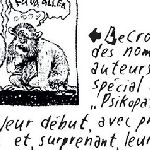 FUWALLER
← Decro
des nom
auteurs
spécial
„Psikopa
leur début, avec pr
et, surprenant, leur